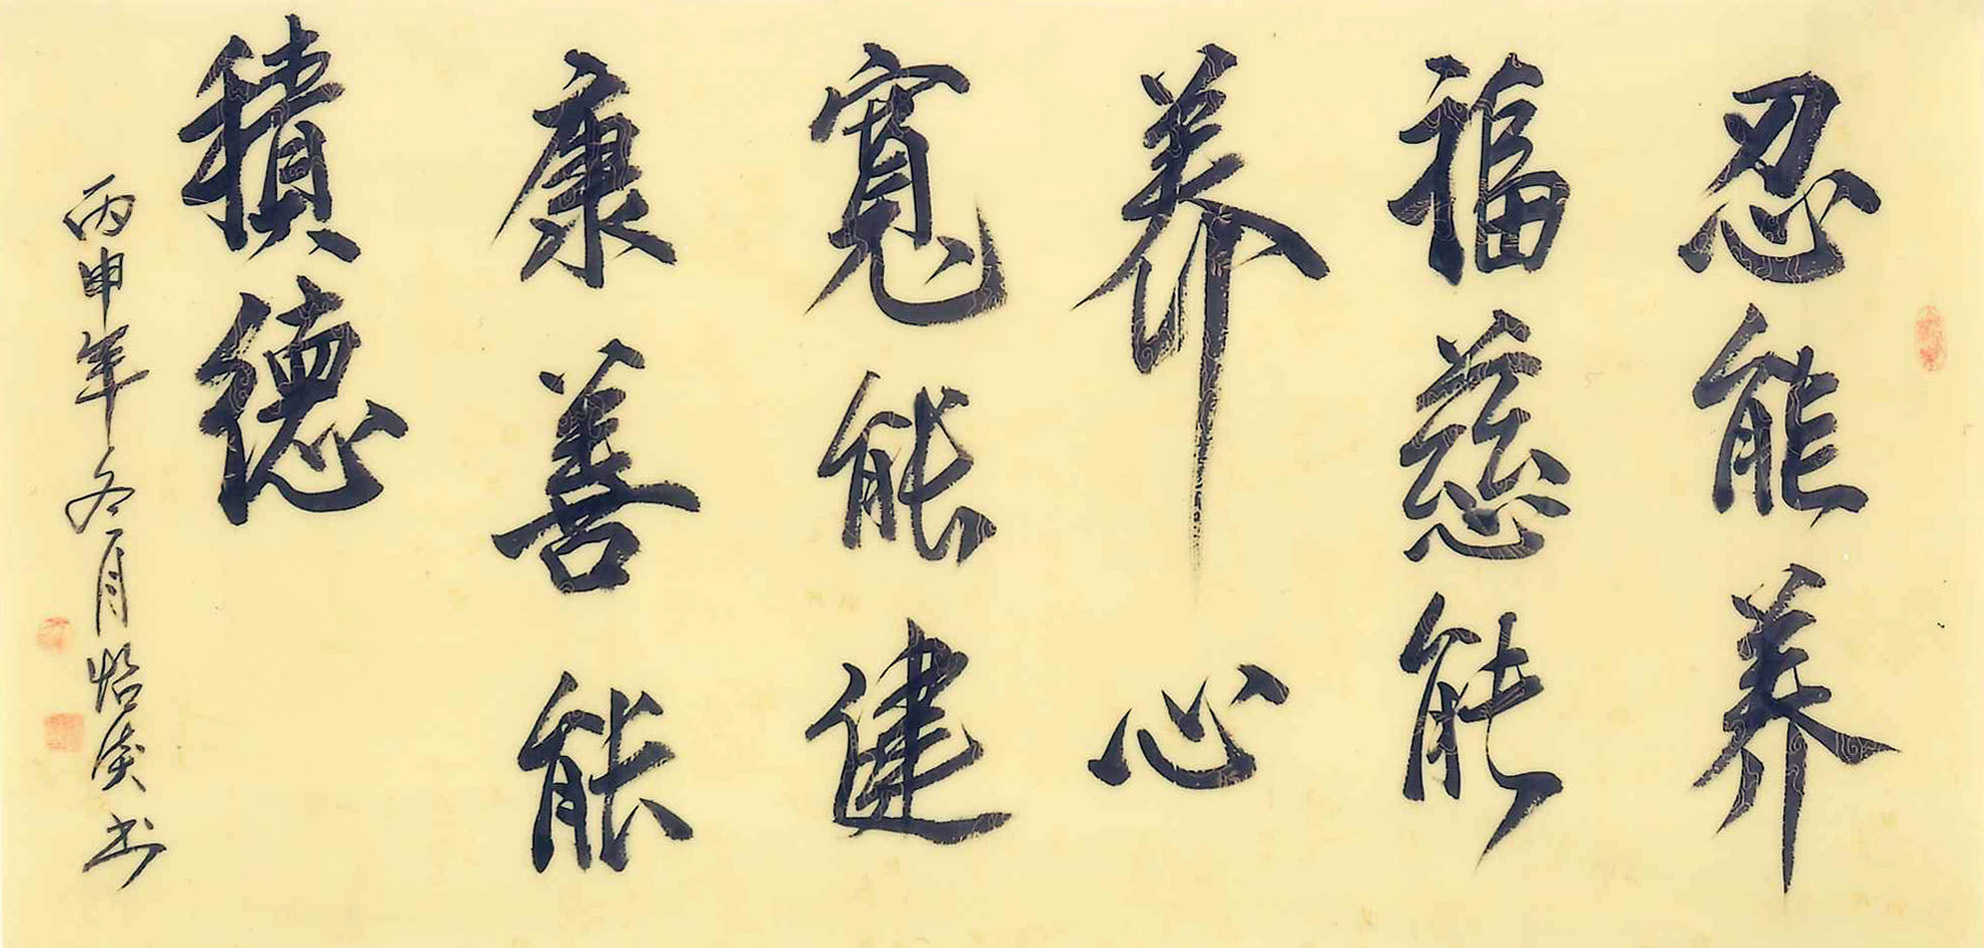 忍能养
福慈能
养心
寬能健
康善能
積德
丙申年冬月怡书